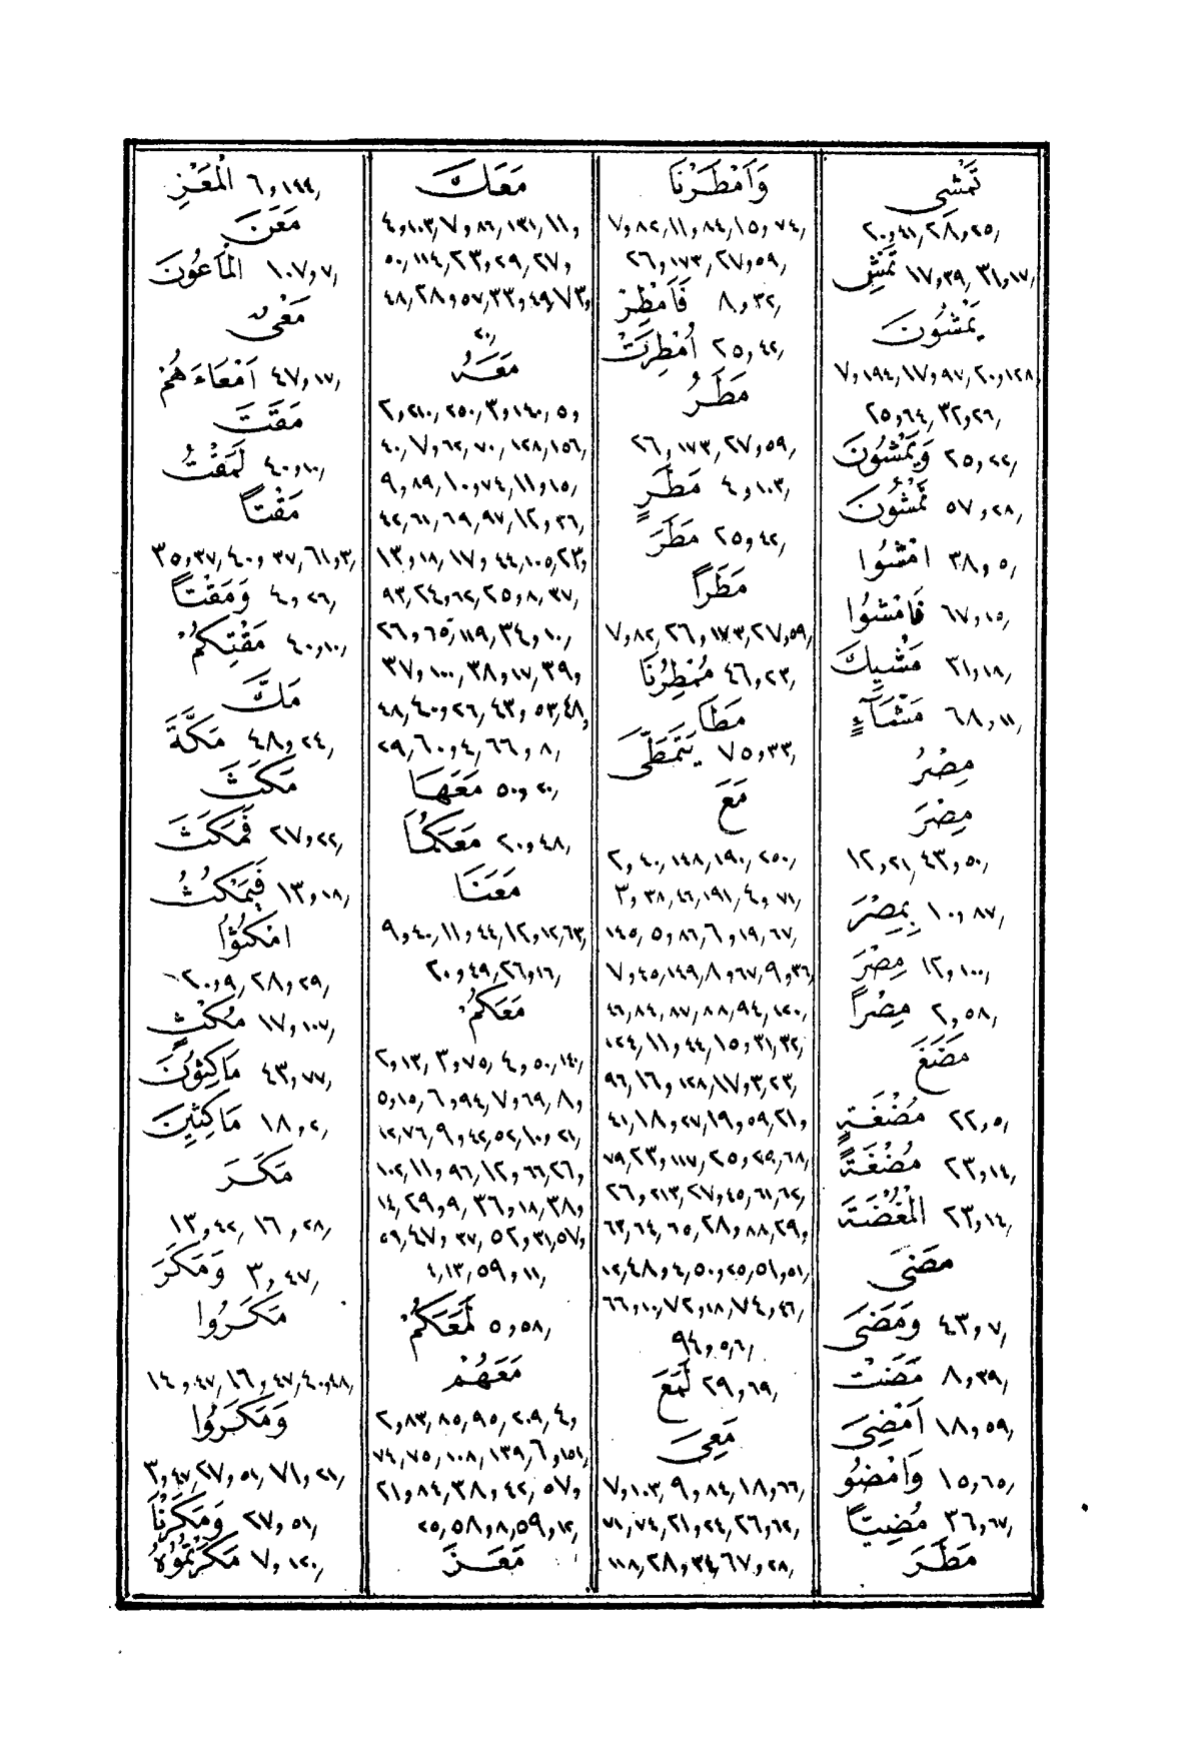 تَمْشِى
٢٠,٤١, ٢٨,٢٥,
١٧,٣٩, ٣١,١٧, تَمْشِ
يَمْشُونَ
٧,١٩٤, ١٧,٩٧, ٢٠,١٢٨,
٢٥,٦٤, ٣٢,٢٦,
٢٥,٢٢, وَيَمْشُونَ
٥٧,٢٨, تَمْشُونَ
٣٨,٥, امْشُوا
٦٧,١٥, فَامْشُوا
٣١,١٨, مَشْيِكَ
٦٨,١١, مَشَّآءٍ
مِصْرُ
مِصْرَ
١٢,٢١, ٤٣,٥٠,
١٠,٨٧, بِمِصْرَ
١٢,١٠٠, مِصْرَ
٢,٥٨, مِصْرًا
مَضَغَ
٢٢,٥, مُضْغَةٍ
٢٣,١٤, مُضْغَةً
٢٣,١٤, الْمُغُضَةَ
مَضَىَ
٤٣,٧, وَمَضَىَ
٨,٣٩, مَضَتْ
١٨,٥٩, اَمْضِىَ
١٥,٦٥, وَامْضُو
٣٦,٦٧, مُضِيًّا
مَطَرَ
وَاَمْطَرْنَا
٧,٨٢, ١١,٨٤, ١٥,٧٤,
٢٦,١٧٣, ٢٧,٥٩,
٨,٣٢, فَاَمْطِرْ
٢٥,٤٢, اُمْطِرَتْ
مَطَرُ
٢٦,١٧٣, ٢٧,٥٩,
٤,١٠٣, مَطَرٍ
٢٥,٤٢, مَطَرَ
مَطَراً
٧,٨٢, ٢٦,١٧٣, ٢٧,٥٩,
٤٦,٢٣, مُمْطِرُنَا
مَطَا
٧٥,٣٣, يَتَمَطَّىَ
مَعَ
٢,٤٠, ١٤٨, ١٩٠, ٢٥٠,
٣,٣٨, ٤٦, ١٩١, ٤,٧١,
١٤٥, ٥,٨٦, ٦,١٩,٦٧,
٧,٤٥, ١٤٩, ٨,٦٧, ٩,٣٦,
٤٦, ٨٤, ٨٧, ٨٨, ٩٤, ١٢٠,
١٢٤, ١١,٤٤, ١٥,٣١,٣٢,
٩٦, ١٦, ١٢٨, ١٧,٣,٢٣,
٤١, ١٨,٢٧, ١٩,٥٩, ٢١,
٧٩, ٢٣,١١٧, ٢٥,٢٩,٦٨,
٢٦,٢١٣, ٢٧,٤٥, ٦١,٦٢,
٦٣,٦٤, ٦٥, ٢٨,٨٨, ٢٩,
١٢, ٤٨,٤, ٥٠,٢٥, ٥١,٥١,
٦٦,١٠, ٧٢,١٨, ٧٤,٤٦,
٩٤,٥,٦,
٢٩,٦٩, لَمَعَ
مَعِىَ
٧,١٠٣, ٩,٨٤, ١٨,٦٦,
٧١,٧٤, ٢١,٢٤, ٢٦,٦٢,
١١٨, ٢٨,٣٤, ٦٧,٢٨,
مَعَكَ
٤,١٠٣, ٧,٨٦, ١٣١, ١١,
٥٠, ١١٤, ٢٣,٢٩, ٢٧,
٤٨, ٢٨,٥٧, ٣٣,٤٩, ٧٣,
٢٠,
مَعَهُ
٢,٢١٠, ٢٥٠, ٣,١٤٠, ٥,
٤٠, ٧,٦٢, ٧٠, ١٢٨, ١٥٦,
٩,٨٩, ١٠,٧٤, ١١,١٥,
٤٢,٦١, ٦٩, ٩٧, ١٢,٣٦,
١٣,١٨, ١٧,٤٤, ١٠٥, ٢٣,
٩٣, ٢٤,٦٢, ٢٥,٨, ٣٧,
٢٦,٦٥, ١١٩, ٣٤,١٠,
٣٧,١٠٠, ٣٨,١٧, ٣٩,
٤٨,٤٠,٢٦, ٤٣,٥٣, ٤٨,
٢٩,٦٠,٤, ٦٦,٨,
٥٠,٢٠, مَعَهَا
٢٠,٤٨, مَعَكُمَا
مَعَنَا
٩,٤٠, ١١,٤٤, ١٢,١٢,٦٣,
٢٠,٤٩, ٢٦,١٦,
مَعَكُمْ
٢,١٣, ٣,٧٥, ٤,٥٠, ١٤٠,
٥,١٥, ٦,٩٤, ٧,٦٩, ٨,
١٢,٧٦, ٩,٤٢,٥٢, ١٠,٢١,
١٠٢, ١١,٩٦, ١٢,٦٦, ٢٦,
١٤, ٢٩,٩, ٣٦,١٨, ٣٨,
٥٩, ٤٧,٣٧, ٥٢,٣١, ٥٧,
٤,١٣, ٥٩,١١,
٥,٥٨, لَمَعَكُمْ
مَعَهُمْ
٢,٨٣, ٨٥, ٩٥, ٢٠٩, ٤,
٧٤,٧٥, ١٠٨, ١٣٩, ٦,١٥١,
٢١,٨٤, ٣٨,٤٢, ٥٧,
٢٥, ٥٨,٨, ٥٩,١٢,
مَعَزَ
٦,١٤٤, الْمَعْزِ
مَعَنَ
١٠٧,٧, الْمَاعُونَ
مَعْىٌ
٤٧,١٧, اَمْعَاءَ هُمْ
مَقَتَ
٤٠,١٠, لَمَقْتُ
مَقْتًا
٣٥,٣٧, ٤٠,٣٧, ٦١,٣,
٤,٢٦, وَمَقْتًا
٤٠,١٠, مَقْتِكُمْ
مَكَّ
٤٨,٢٤, مَكَّةَ
مَكَثَ
٢٧,٢٢, فَمَكَثَ
١٣,١٨, فَيَمْكُثُ
امْكُثُوْا
٢٠,٩, ٢٨,٢٩,
١٧,١٠٧, مُكْثٍ
٤٣,٧٧, مَاكِثُونَ
١٨,٢, مَاكِثِينَ
مَكَرَ
١٣,٤٢, ١٦,٢٨,
٣,٤٧, وَمَكَرَ
مَكَرُوا
١٤,٤٧, ١٦,٤٧, ٤٠,٤٨,
وَمَكَرُوا
٣,٤٧, ٢٧,٥١, ٧١,٢١,
٢٧,٥١, وَمَكَرْنَا
٧,١٢٠, مَكَرْتُمُوْهُ